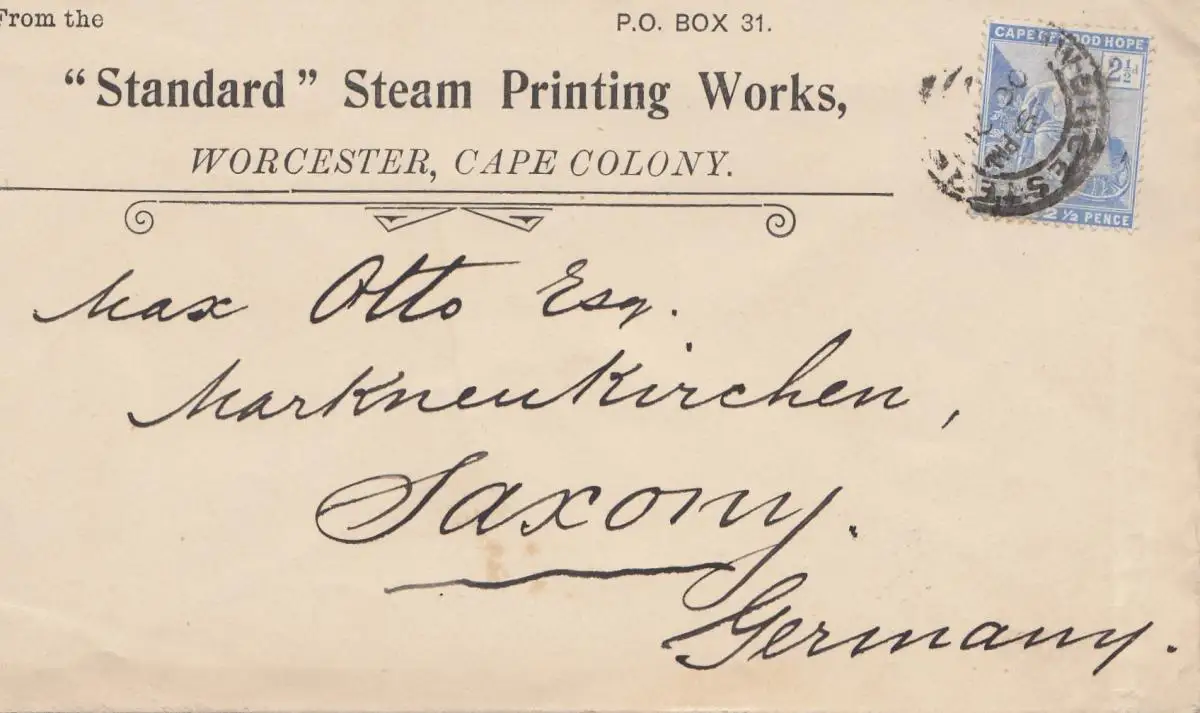 From the
P.O. BOX 31.
"Standard" Steam Printing Works,
WORCESTER, CAPE COLONY.
CAPE OF GOOD HOPE
2½d
2½ PENCE
WORCESTER
PM
Max Otto Esq.
Markneukirchen,
Saxony.
Germany.